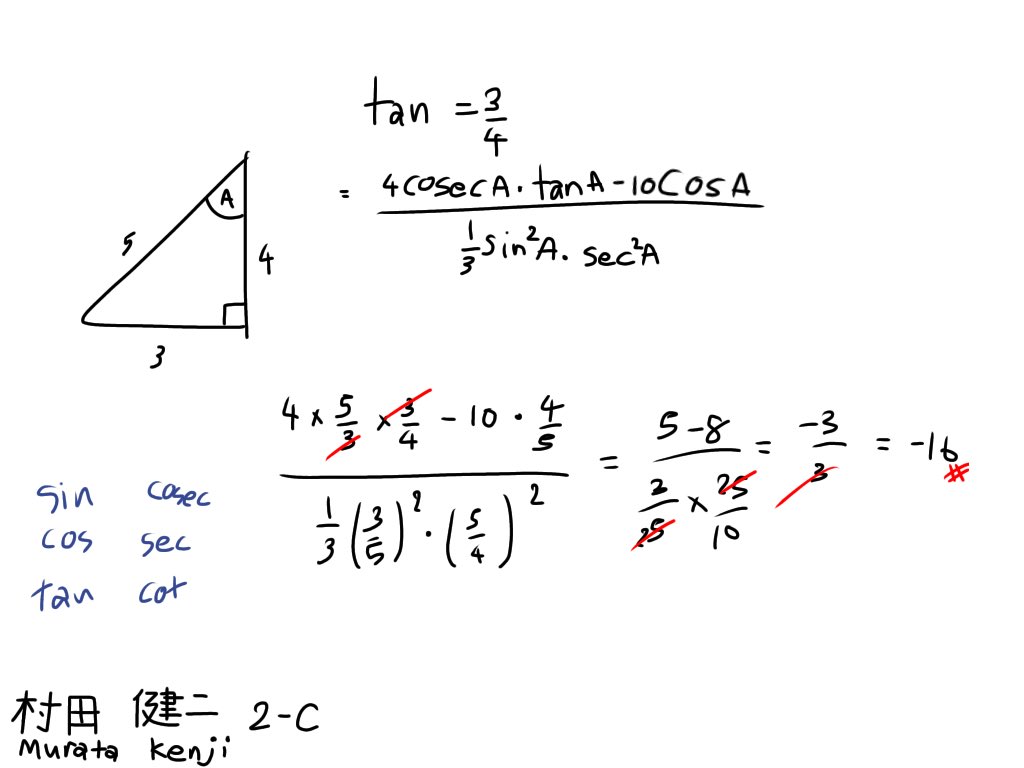 tan = 3/4
A
5
4
3
= (4cosecA · tanA - 10cosA) / (1/3 sin²A · sec²A)
(4 × 5/3 × 3/4 - 10 · 4/5) / (1/3 (3/5)² · (5/4)²) = (5-8) / (2/25 × 25/10) = -3/3 = -16
sin cosec
cos sec
tan cot
村田 健二 2-C
Murata Kenji